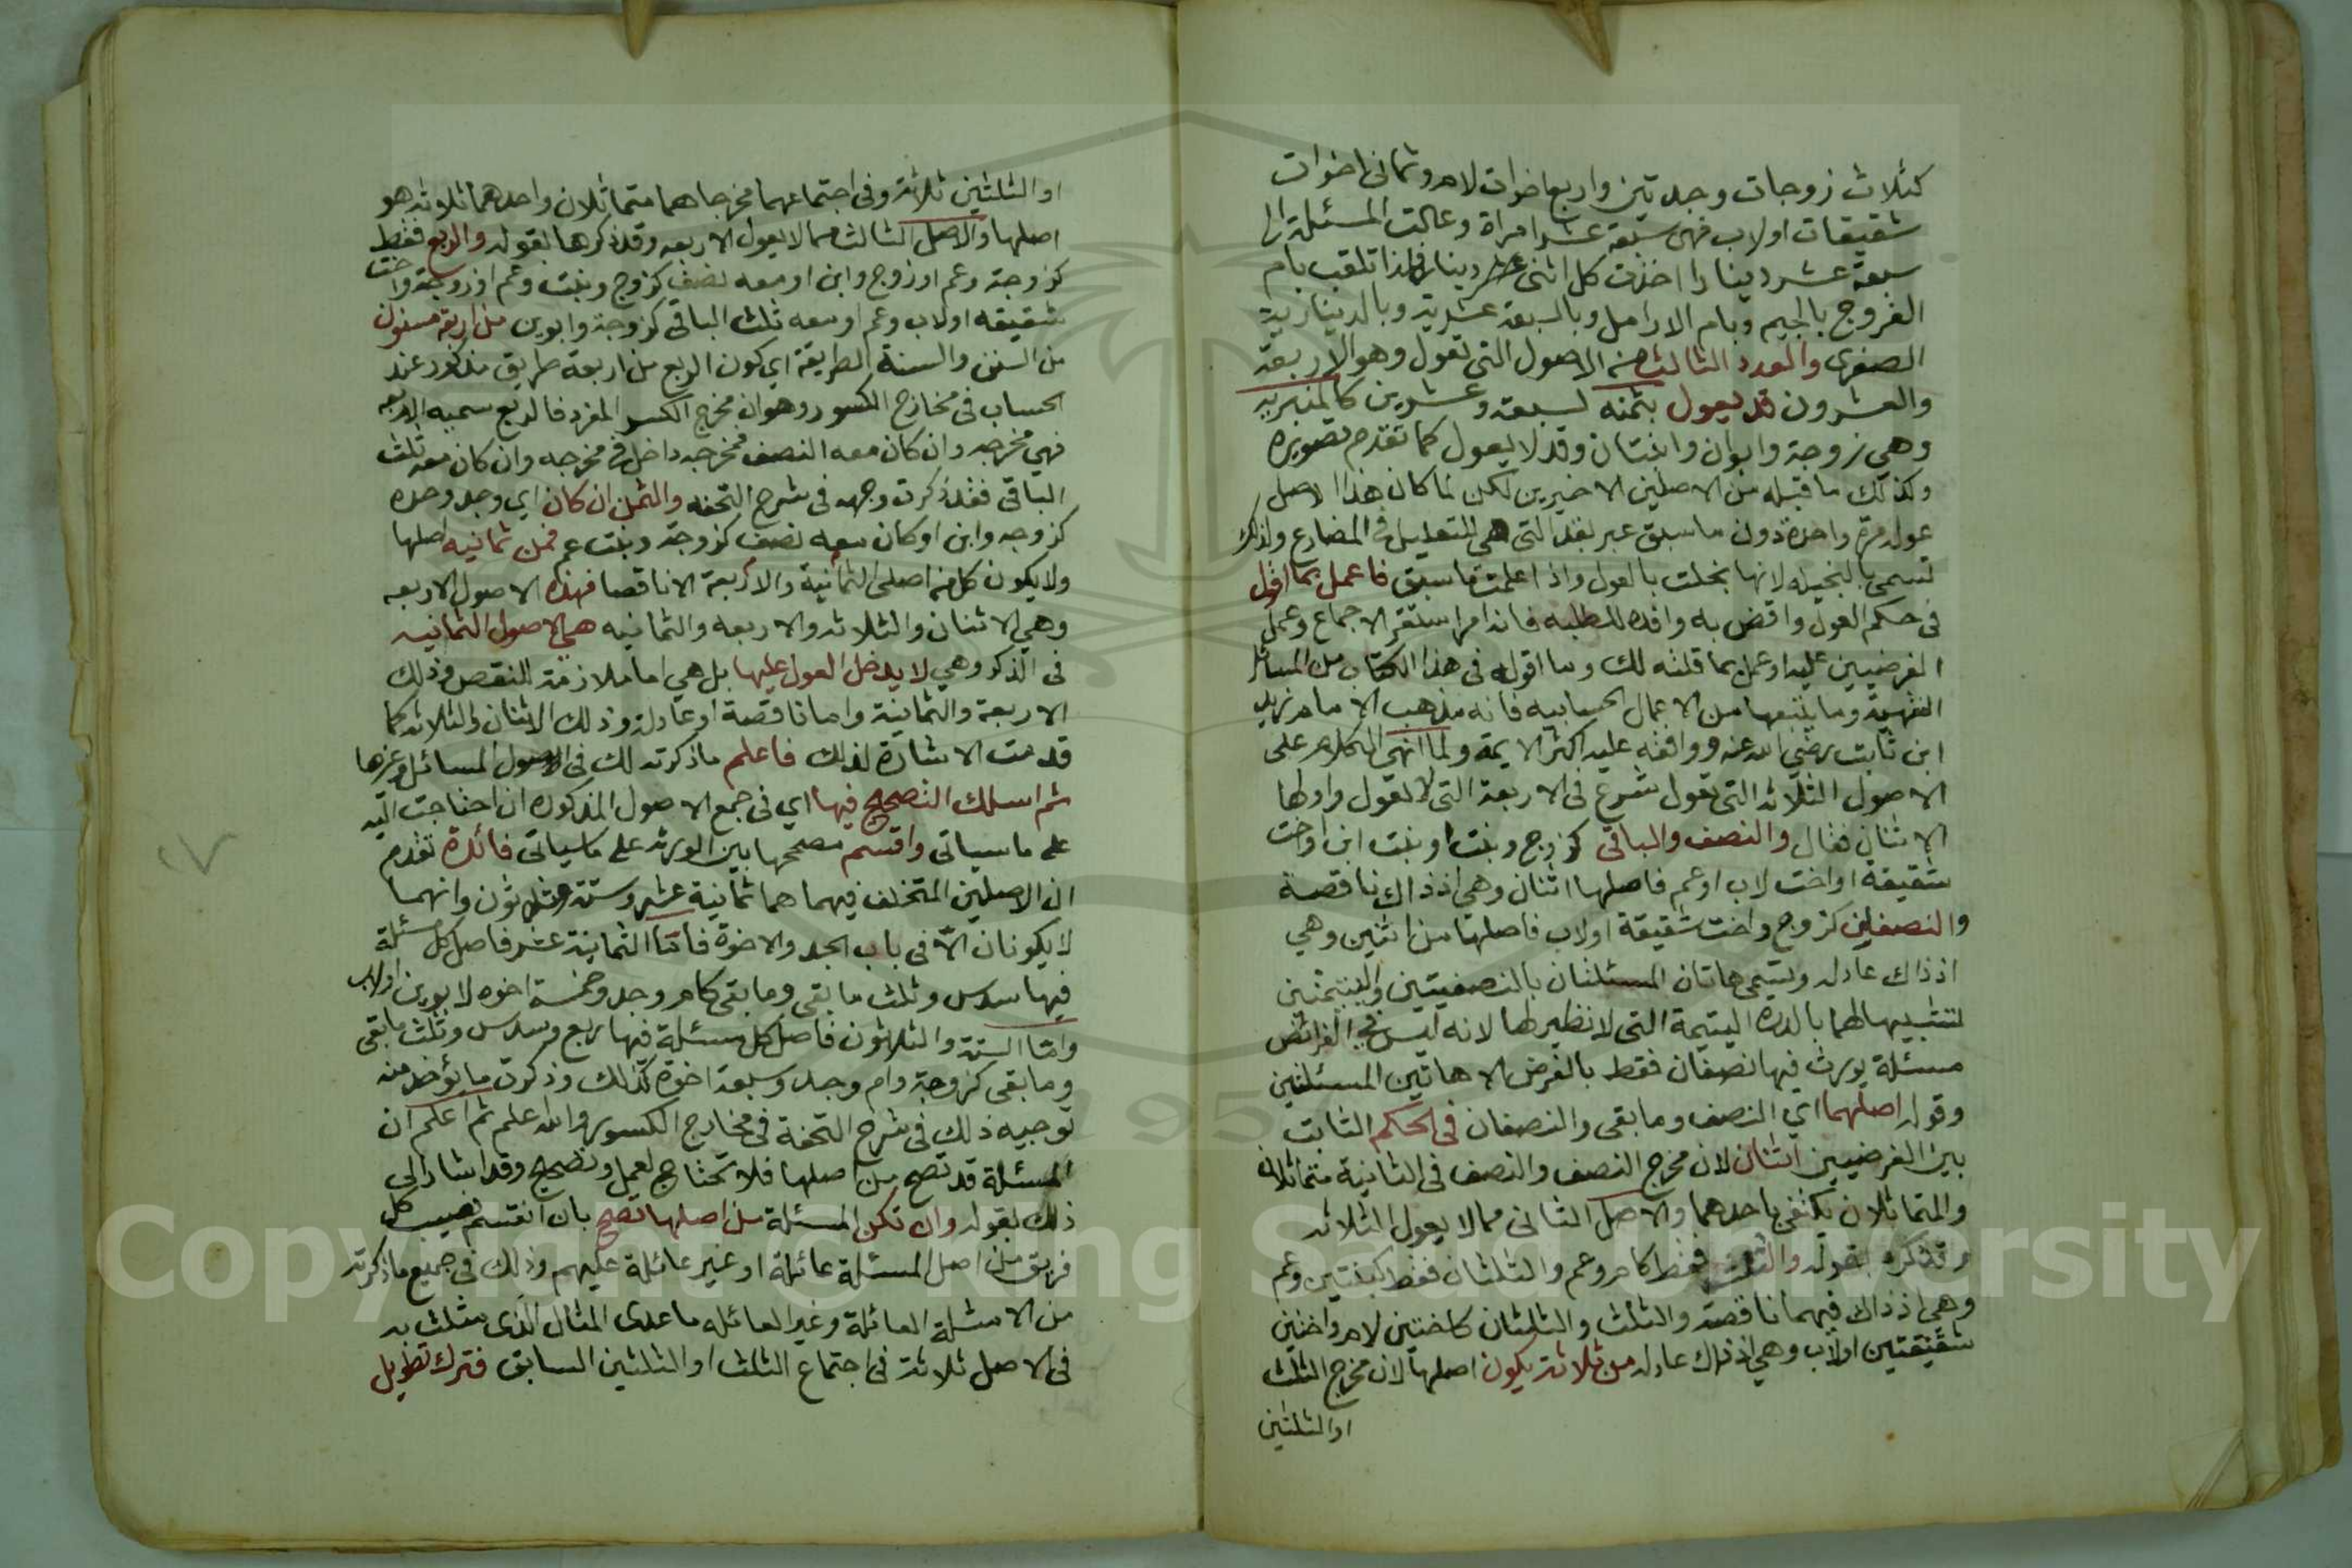 كثلاث زوجات وجدتين واربع اخوات لام وثماني اخوات
شقيقات اولاب فهن سبعة عشر امراة وعالت المسئلة الى
سبعة عشر دينارا اخذت كل انثى دينارا فلهذا تلقب بام
الفروج بالجيم وبام الارامل وبالسبعة عشرية وبالدينارية
الصغرى والعدد الثالث من الاصول التي تعول وهو الاربعة
والعشرون قد يعول بثمنه لسبعة وعشرين كالمنبرية
وهي زوجة وابوان وابنتان وقد لا يعول كما تقدم تصويره
وكذلك ما قبله من الاصلين الاخيرين لكن لما كان هذا الاصل
عوله مرة واحدة دون ما سبق عبر بقد التي هي للتقليل في المضارع ولذلك
تسمى بالبخيلة لانها بخلت بالعول واذا علمت ما سبق فاعمل بما اقول
في حكم العول واقض به وافده للطلبه فانه امر استقر الاجماع وعمل
الفرضيين عليه او عمل بما قلته لك وما اقوله في هذا الكتاب من المسائل
الفقهية وما يتبعها من الاعمال الحسابيه فانه مذهب الامام زيد
ابن ثابت رضي الله عنه ووافقه عليه اكثر الايمة ولما انهى الكلام على
الاصول الثلاثه التي تعول شرع في الاربعة التي لا تعول واولها
الاثنان فقال والنصف والباقي كزوج وبنت او بنت ابن او اخت
شقيقة او اخت لاب او عم فاصلها اثنان وهي اذ ذاك ناقصة
والنصفين كزوج واخت شقيقة اولاب فاصلها من اثنين وهي
اذ ذاك عادله وتسمى هاتان المسئلتان بالنصفيتين واليتيمتين
لتشبيهالهما بالدره اليتيمة التي لا نظير لها لانه ليس في الفرائض
مسئلة يورث فيها نصفان فقط بالفرض الا هاتين المسئلتين
وقوله اصلهما اي النصف وما بقى والنصفان في الحكم الثابت
بين الفرضيين اثنان لان مخرج النصف والنصف في الثانية متماثلان
والمتماثلان يكتفى باحدهما والاصل الثاني مما لا يعول الثلاثه
وقد ذكره بقوله والثلث فقط كام وعم والثلثان فقط كبنتين وعم
وهي اذ ذاك فيهما ناقصة والثلث والثلثان كاختين لام واختين
شقيقتين اولاب وهي اذ ذاك عادله من ثلاثة يكون اصلها لان مخرج الثلث
اوالثلثين
او الثلثين ثلاثة وفي اجتماعهما مخرجاهما متماثلان واحدهما ثلاثه هو
اصلها والاصل الثالث مما لا يعول الاربعه وقد ذكرها بقوله والربع فقط
كزوجة وعم او زوج وابن او معه نصف كزوج وبنت وعم او زوجة واخت
شقيقه اولاب وعم او معه ثلث الباقي كزوجة وابوين من اربعة مسنون
من السنن والسنة الطريقة اي كون الربع من اربعة طريق مذكور عند
الحساب في مخارج الكسور وهو ان مخرج الكسر المفرد فالربع سميه الاربعه
فهي مخرجه وان كان معه النصف فمخرجه داخل في مخرجه وان كان معه ثلث
الباقي فقد ذكرت وجهه في شرح التحفه والثمن ان كان اي وجد وحده
كزوجه وابن او كان معه نصف كزوجة وبنت عم فمن ثمانيه اصلها
ولا يكون كل من اصلى الثمانية والاربعة الا ناقصا فهذه الاصول الاربعه
وهي الاثنان والثلاثه والاربعه والثمانيه هي الاصول الثمانيه
في الذكر وهي لا يدخل العول عليها بل هي اما ملازمة للنقص وذلك
الاربعة والثمانية واما ناقصة او عادلة وذلك الاثنان والثلاثه كما
قدمت الاشارة لذلك فاعلم ما ذكرته لك في اصول المسائل وغيرها
ثم اسلك التصحيح فيها اي في جمع الاصول المذكوره ان احتاجت اليه
على ما سياتى واقسم مصححها بين الورثه على ما سياتى فائدة تقدم
ان الاصلين المتخلف فيهما هما ثمانية عشر وستة وثلاثون وانهما
لا يكونان الا في باب الجد والاخوة فاما الثمانية عشر فاصل كل مسئلة
فيها سدس وثلث ما بقى وما بقى كام وجد وخمسة اخوه لابوين اولاب
واما الستة والثلاثون فاصل كل مسئلة فيها ربع وسدس وثلث ما بقى
وما بقى كزوجة وام وجد وسبعة اخوة كذلك وذكرت ما يؤخذ منه
توجيه ذلك في شرح التحفة في مخارج الكسور والله اعلم ثم اعلم ان
المسئلة قد تصح من اصلها فلا تحتاج لعمل وتصحيح وقد اشار الى
ذلك بقوله وان تكن المسئلة من اصلها تصح بان انقسم نصيب كل
فريق من اصل المسئلة عائلة او غير عائلة عليهم وذلك في جميع ما ذكرته
من الامثلة العائلة وغير العائله ما عدى المثال الذى مثلت به
في الاصل ثلاثة في اجتماع الثلث او الثلثين السابق فترك تطويل
١٧
Copyright © King Saud University
1957